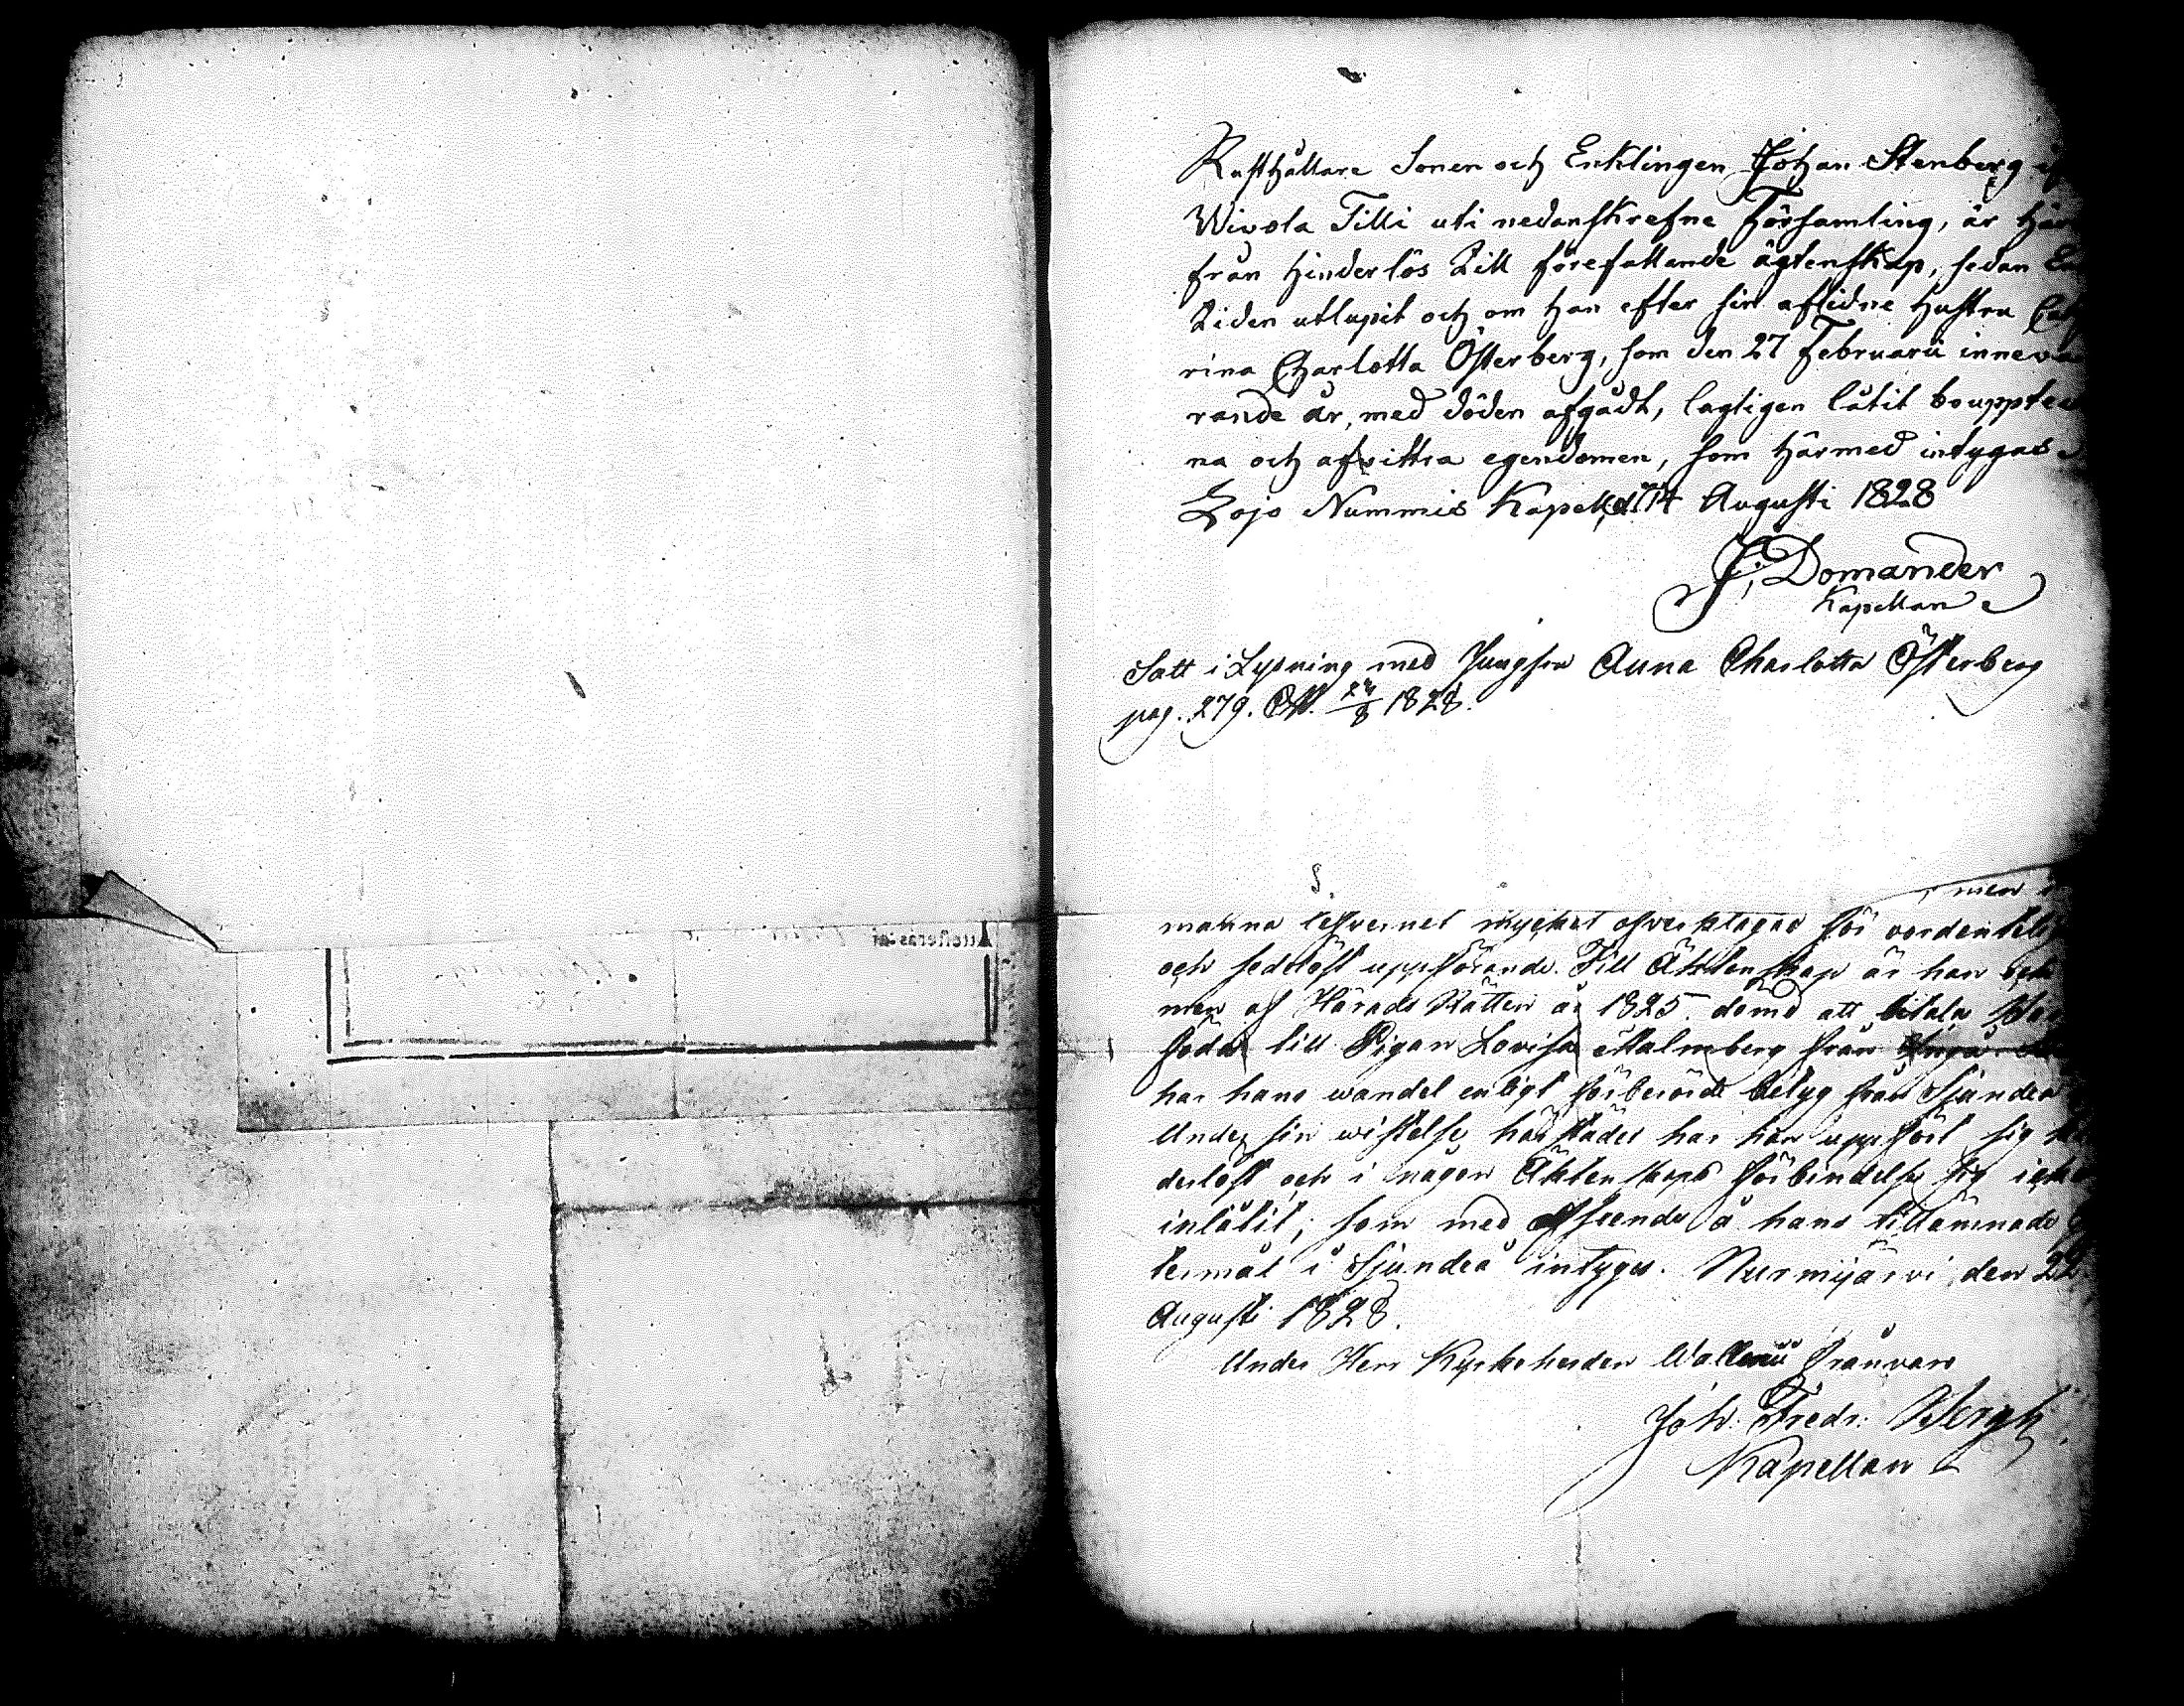 Rusthållare Sonen och Enklingen Johan Stenberg
Wivola Tilli uti nedanskrefne Församling, är
från hinderlös till förefallande ägtenskap, sedan
tiden utlupit och om han efter sin aflidne hustru
rina Charlotta Österberg, som den 27 Februarii inneva
rande år, med döden afgådt, lagligen låtit bouppte
na och afvittra egendomen, som härmed intygas
Lojo Nummis Kapell d. 14 Augusti 1828
J. Domander
Kapellan
Satt i Lysning med Jungfru Anna Charlotta Österberg
pag. 279. 1828.
men
manna lefvernet mycket öfverklagad för
och sedelöst uppförande. Till Äktenskap är han
men af Härads Rätten år 1825 dömd att betala
föda till Pigan Lovisa Malmberg från
har hans wandel enligt förberörde betyg från Sjundeå
Under sin wistelse härstädes har han uppfört sig
derlöst och i någon Äktenskaps förbindelse sig icke
inlåtit; som med afseende å hans tillämnade
termål i Sjundeå intygas. Nurmijärvi den 22
Augusti 1828.
Under Herr Kyrkoherden Wallenii frånvaro
Joh: Fredr: Bergh
Kapellan